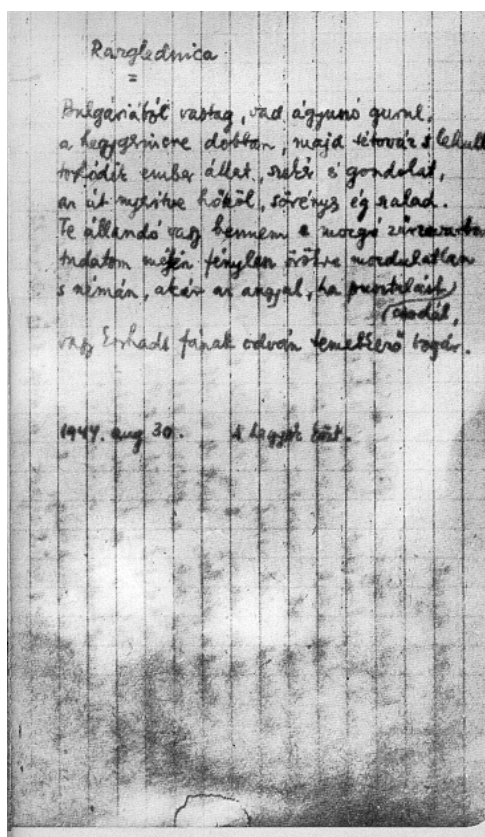 Razglednica
Bulgáriából vastag, vad ágyuszó gurul,
a hegygerincre dobban, majd tétováz s lehull
torlódik ember állat, szekér és gondolat,
az út nyerítve hőköl, sörényes ég szalad.
Te állandó vagy bennem e mozgó zürzavarban
tudatom mélyén fénylesz örökre mozdulatlan
s némán, akár az angyal, ha pusztulást
csodál,
vagy korhadt fának odván temetkező bogár.
1944. aug 30. A hegyek közt.